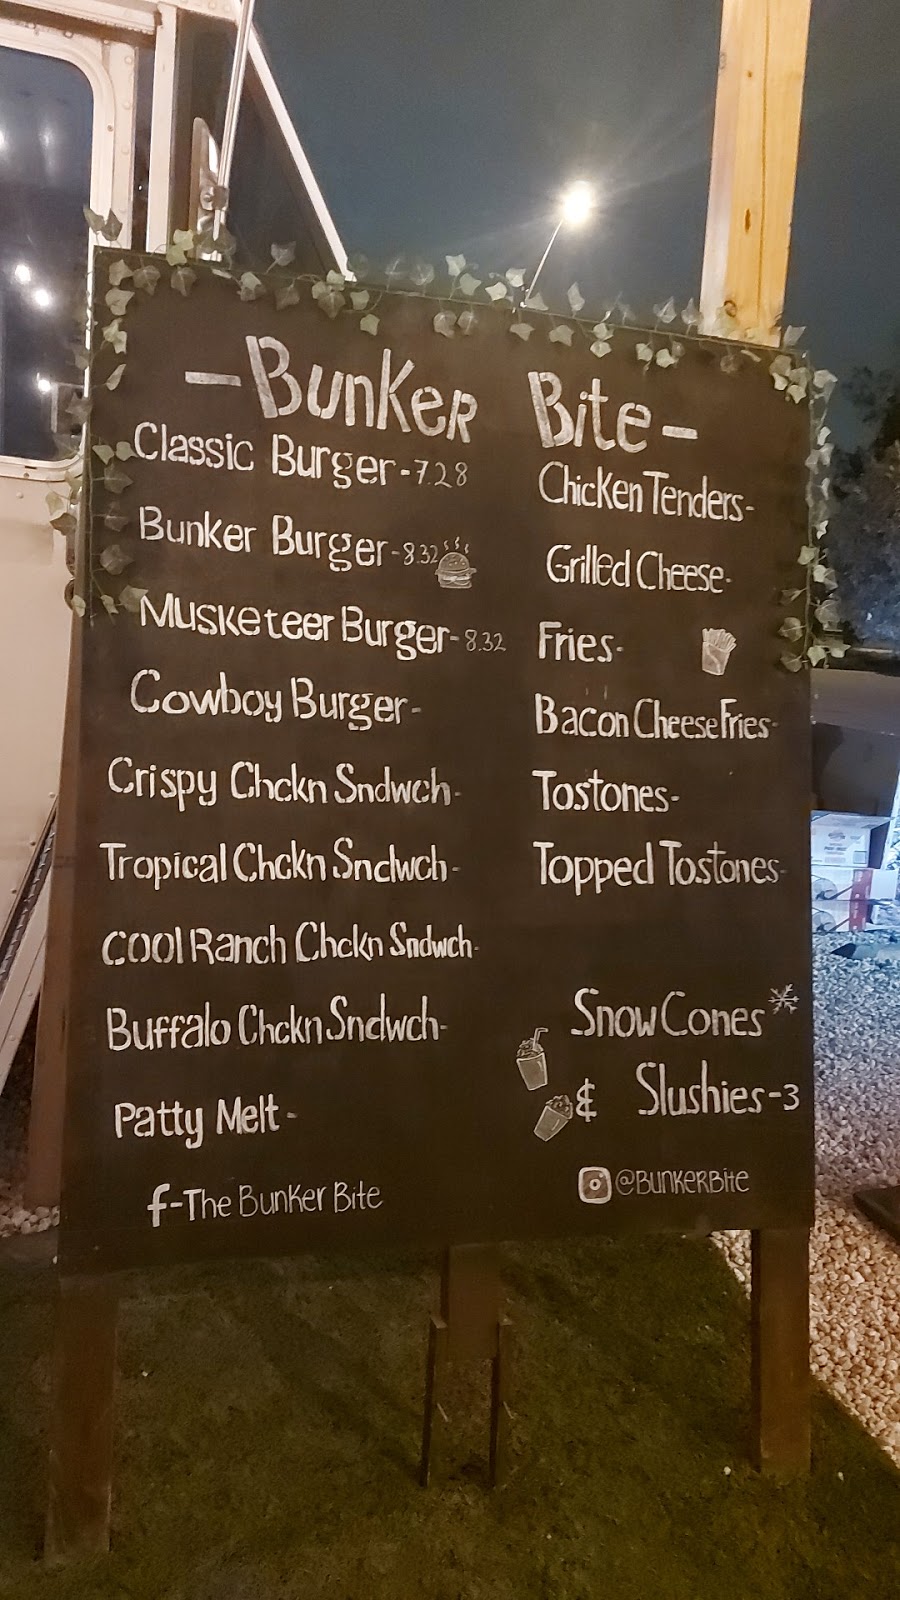 -Bunker Bite-
Classic Burger-7.28
Bunker Burger-8.32
Musketeer Burger-8.32
Cowboy Burger-
Crispy Chckn Sndwch-
Tropical Chckn Sndwch-
Cool Ranch Chckn Sndwch-
Buffalo Chckn Sndwch-
Patty Melt-
f-The Bunker Bite
Chicken Tenders-
Grilled Cheese-
Fries-
Bacon Cheese Fries-
Tostones-
Topped Tostones-
Snow Cones
& Slushies-3
@BunkerBite